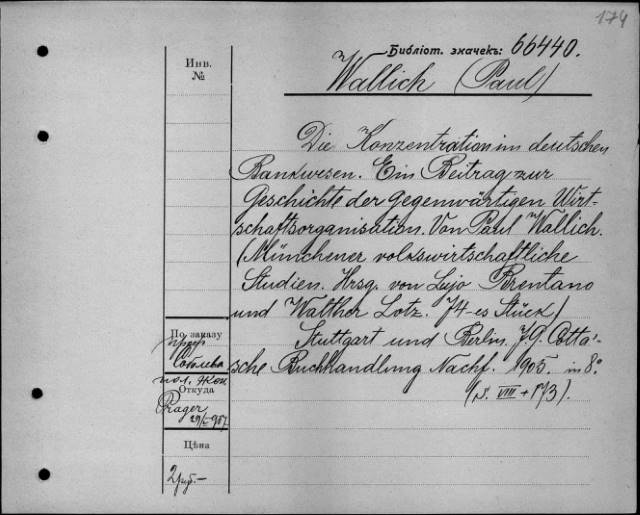 174
Библіот. значекъ: 66440.
Инв.
№
Wallich (Paul)
Die Konzentration im deutschen
Bankwesen. Ein Beitrag zur
Geschichte der gegenwärtigen Wirt-
schaftsorganisation. Von Paul Wallich.
(Münchener volkswirtschaftliche
Studien. Hrsg. von Lujo Brentano
und Walther Lotz. 74-es Stück)
Stuttgart und Berlin. J. G. Cotta'-
sche Buchhandlung Nachf. 1905. in 8°.
(S. VIII + 173).
По заказу
проф.
Соболева
пол.
Откуда
Prager
Цѣна
2 руб. -